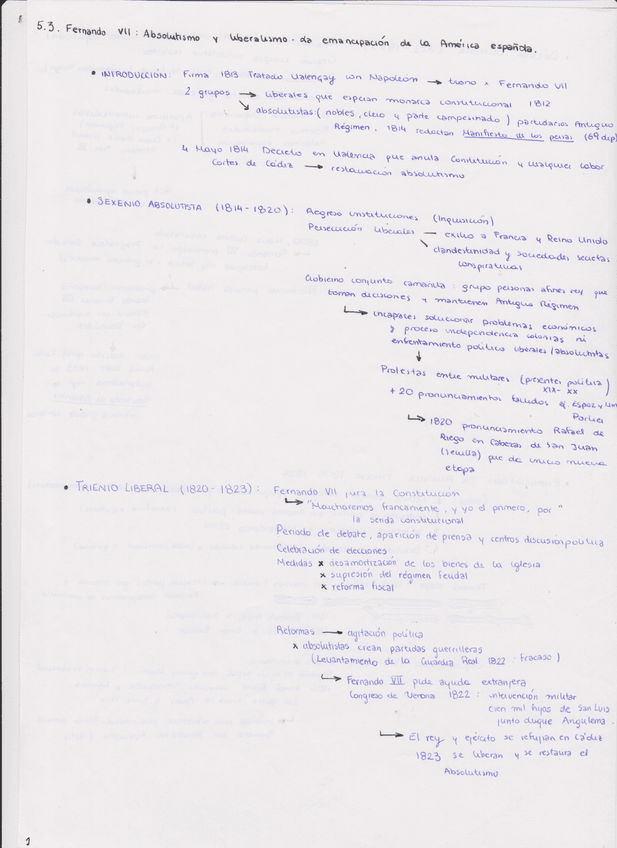 5.3. Fernando VII: Absolutismo y liberalismo. La emancipación de la América española.
• INTRODUCCIÓN: Firma 1813 Tratado Valençay con Napoleón → trono x Fernando VII
2 grupos → liberales que esperan monarca constitucional 1812
↘ absolutistas (nobles, clero y parte campesinado) partidarios Antiguo
Régimen. 1814 redactan Manifiesto de los persas (69 dip)
4 Mayo 1814 Decreto en Valencia que anula Constitución y cualquier labor
Cortes de Cádiz → restauración absolutismo
• SEXENIO ABSOLUTISTA (1814-1820): Regreso instituciones (Inquisición)
Persecución liberales → exilio a Francia y Reino Unido
↘ clandestinidad y sociedades secretas
conspirativas
Gobierno conjunto camarilla: grupo personas afines rey que
toman decisiones y mantienen Antiguo Régimen
↳ incapaces solucionar problemas económicos
y proceso independencia colonias ni
enfrentamiento político liberales/absolutistas
↓
Protestas entre militares (presentes política)
XIX - XX
+ 20 pronunciamientos fallidos ej. Espoz y
Porlier
↳ 1820 pronunciamiento Rafael de
Riego en Cabezas de San Juan
(Sevilla) que da inicio nueva
etapa
• TRIENIO LIBERAL (1820-1823): Fernando VII jura la Constitución
↳ "Marcharemos francamente, y yo el primero, por"
la senda constitucional
Periodo de debate, aparición de prensa y centros discusión política
Celebración de elecciones
Medidas x desamortización de los bienes de la iglesia
x supresión del régimen feudal
x reforma fiscal
Reformas → agitación política
x absolutistas crean partidas guerrilleras
(Levantamiento de la Guardia Real 1822: fracaso)
↳ Fernando VII pide ayuda extranjera
Congreso de Verona 1822: intervención militar
cien mil hijos de San Luis
junto duque Angulema.
↳ El rey y ejército se refugian en Cádiz
1823 se liberan y se restaura el
Absolutismo